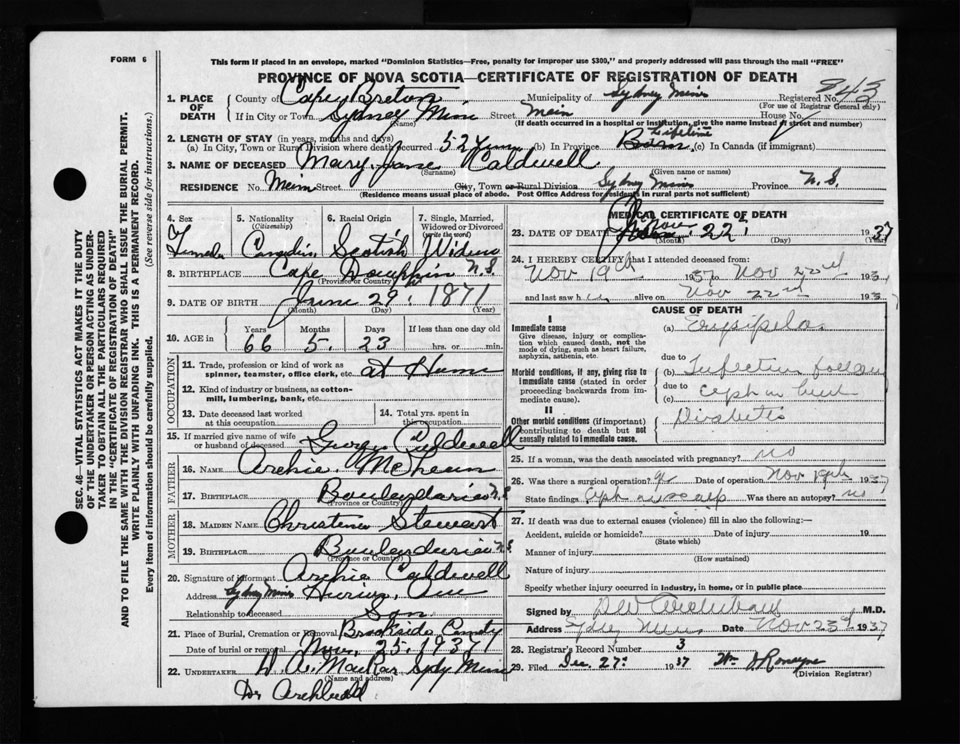 FORM 6
This form if placed in an envelope, marked "Dominion Statistics—Free, penalty for improper use $300," and properly addressed will pass through the mail "FREE"
PROVINCE OF NOVA SCOTIA—CERTIFICATE OF REGISTRATION OF DEATH
1. PLACE OF DEATH County of Cape Breton Municipality of Sydney Mines Registered No. 843
(For use of Registrar General only)
If in City or Town Sydney Mines Street Main House No.
(Name) (If death occurred in a hospital or institution, give the name instead of street and number)
2. LENGTH OF STAY (in years, months and days)
(a) In City, Town or Rural Division where death occurred 52 years (b) In Province Born lifetime (c) In Canada (if immigrant)
3. NAME OF DECEASED Mary Jane Caldwell
(Surname) (Given name or names)
RESIDENCE No. Main Street City, Town or Rural Division Sydney Mines Province N.S.
(Residence means usual place of abode. Post Office Address for residents in rural parts not sufficient)
4. Sex 5. Nationality (Citizenship) 6. Racial Origin 7. Single, Married, Widowed or Divorced (write the word)
Female Canadian Scotish Widow
8. BIRTHPLACE Cape Dauphin N.S.
(Province or Country)
9. DATE OF BIRTH June 29, 1871
(Month) (Day) (Year)
10. AGE in Years Months Days If less than one day old
66 5 23 hrs. or min.
OCCUPATION
11. Trade, profession or kind of work as spinner, teamster, office clerk, etc. at Home
12. Kind of industry or business, as cotton-mill, lumbering, bank, etc.
13. Date deceased last worked at this occupation 14. Total yrs. spent in this occupation
15. If married give name of wife or husband of deceased George Caldwell
FATHER
16. NAME Archie
17. BIRTHPLACE N.S.
(Province or Country)
MOTHER
18. MAIDEN NAME Christena Stewart
19. BIRTHPLACE N.S.
(Province or Country)
20. Signature of informant Archie Caldwell
Address Sydney Mines Ave
Relationship to deceased Son
21. Place of Burial, Cremation or Removal Brookside
Date of burial or removal Nov. 25, 1937
22. UNDERTAKER Sydy Mines
(Name and address)
Dr Archibald
MEDICAL CERTIFICATE OF DEATH
23. DATE OF DEATH Nov 22, 1937
(Month) (Day) (Year)
24. I HEREBY CERTIFY that I attended deceased from:
Nov 19th 1937 to Nov 22nd 193
and last saw h er alive on Nov 22nd 193
CAUSE OF DEATH
I
Immediate cause (a) Erysipelas
Give disease, injury or complication which caused death, not the mode of dying, such as heart failure, asphyxia, asthenia, etc.
due to
Morbid conditions, if any, giving rise to immediate cause (stated in order proceeding backwards from immediate cause). (b) Infection
due to
(c)
II
Other morbid conditions (if important) contributing to death but not causally related to immediate cause. Diabetes
25. If a woman, was the death associated with pregnancy? no
26. Was there a surgical operation? Date of operation Nov 19th 1937
State findings scalp Was there an autopsy? no
27. If death was due to external causes (violence) fill in also the following:—
Accident, suicide or homicide? Date of injury 19
(State which)
Manner of injury
(How sustained)
Nature of injury
Specify whether injury occurred in industry, in home, or in public place
Signed by Archibald M.D.
Address Mines Date Nov 23d 1937
28. Registrar's Record Number 3
29. Filed Dec. 27 1937 Wm
(Division Registrar)
SEC. 46—VITAL STATISTICS ACT MAKES IT THE DUTY
OF THE UNDERTAKER OR PERSON ACTING AS UNDER-
TAKER TO OBTAIN ALL THE PARTICULARS REQUIRED
IN THE "CERTIFICATE OF REGISTRATION OF DEATH"
AND TO FILE THE SAME WITH THE DIVISION REGISTRAR WHO SHALL ISSUE THE BURIAL PERMIT.
WRITE PLAINLY WITH UNFADING INK. THIS IS A PERMANENT RECORD.
Every item of information should be carefully supplied. (See reverse side for instructions.)